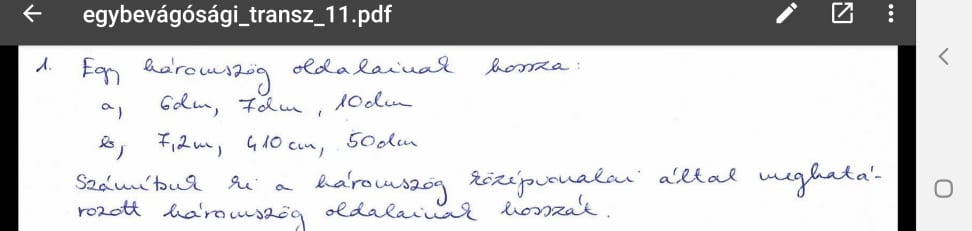 egybevágósági_transz_11.pdf
1. Egy háromszög oldalainak hossza:
a, 6dm, 7dm, 10dm
b, 7,2m, 410 cm, 50dm
Számítsuk ki a háromszög középvonalai által meghatá-
rozott háromszög oldalainak hosszát.